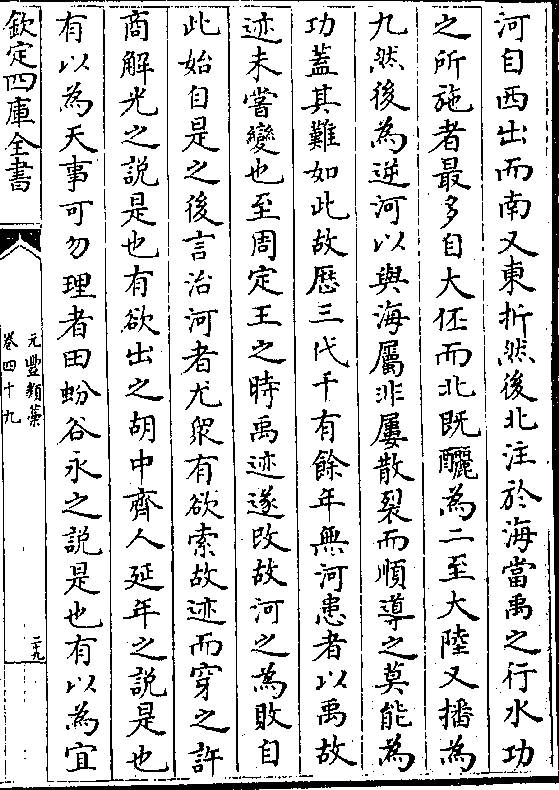 河自西出而南又東折然後北注於海當禹之行水功
之所施者最多自大伾而北既釃為二至大陸又播為
九然後為逆河以與海屬非屢散裂而順導之莫能為
功蓋其難如此故歷三代千有餘年無河患者以禹故
迹未嘗變也至周定王之時禹迹遂改故河之為敗自
此始自是之後言治河者尤眾有欲索故迹而穿之許
商解光之說是也有欲出之胡中齊人延年之說是也
有以為天事可勿理者田蚡谷永之說是也有以為宜
欽定四庫全書
元豐類藁
卷四十九
二十九